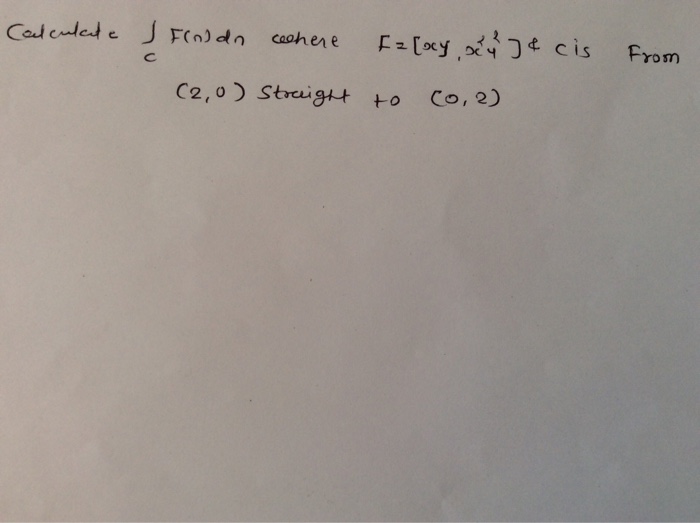 Calculate ∫ F(r)dr where F=[xy, x²y²] & c is From
c
(2,0) Straight to (0,2)